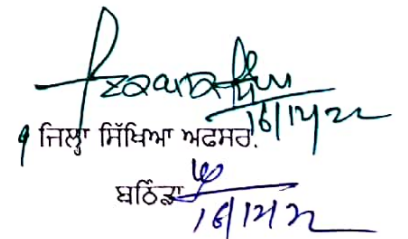 16/12/22
ਜਿਲ੍ਹਾ ਸਿੱਖਿਆ ਅਫਸਰ.
ਬਠਿੰਡਾ
16/12/22